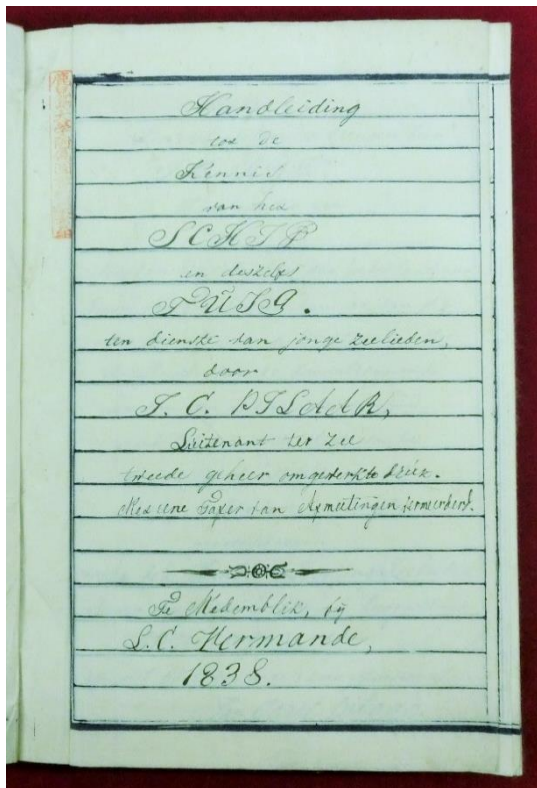 Handleiding
tot de
Kennis
van het
SCHIP
en deszelfs
TUIG.
ten dienste van jonge zeelieden,
door
J. C. PILAAR,
Luitenant ter zee
tweede geheel omgewerkte druk.
Met eene Tafel van Afmetingen vermeerderd.
Te Medemblik, bij
L. C. Vermande,
1838.